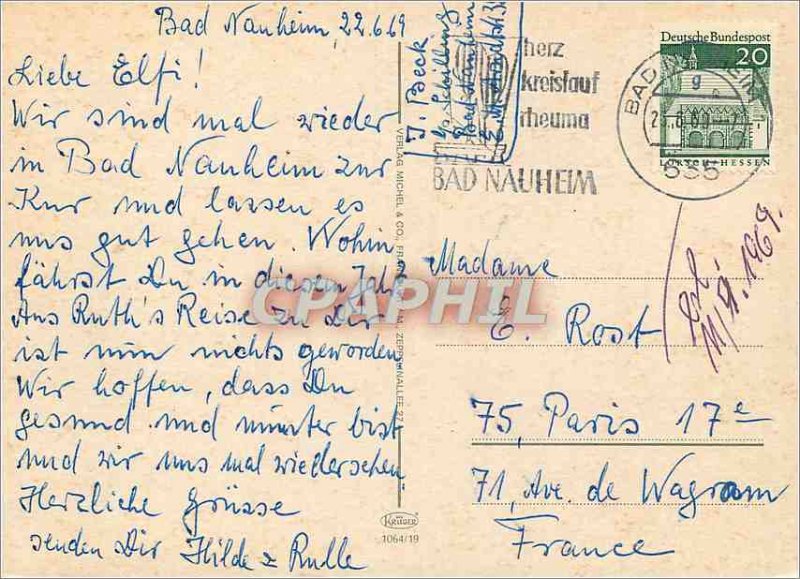 Bad Nauheim, 22.6.69
Liebe Elfi!
Wir sind mal wieder
in Bad Nauheim zur
Kur und lassen es
uns gut gehen. Wohin
fährst Du in diesem Jahr
Aus Ruth's Reise zu Dir
ist nun nichts geworden
Wir hoffen, dass Du
gesund und munter bist
und wir uns mal wiedersehen
Herzliche Grüsse
senden Dir Hilde &
J. Beck
Bad Nauheim
herz
kreislauf
rheuma
BAD NAUHEIM
Deutsche Bundespost
20
LORSCH-HESSEN
BAD NAUHEIM
g
635
VERLAG MICHEL & CO., ZEPPELINALLEE 27
KRÜGER
1064/19
Madame
E. Rost
75, Paris 17e
71, Ave. de Wagram
France
1969.
CPAPHIL